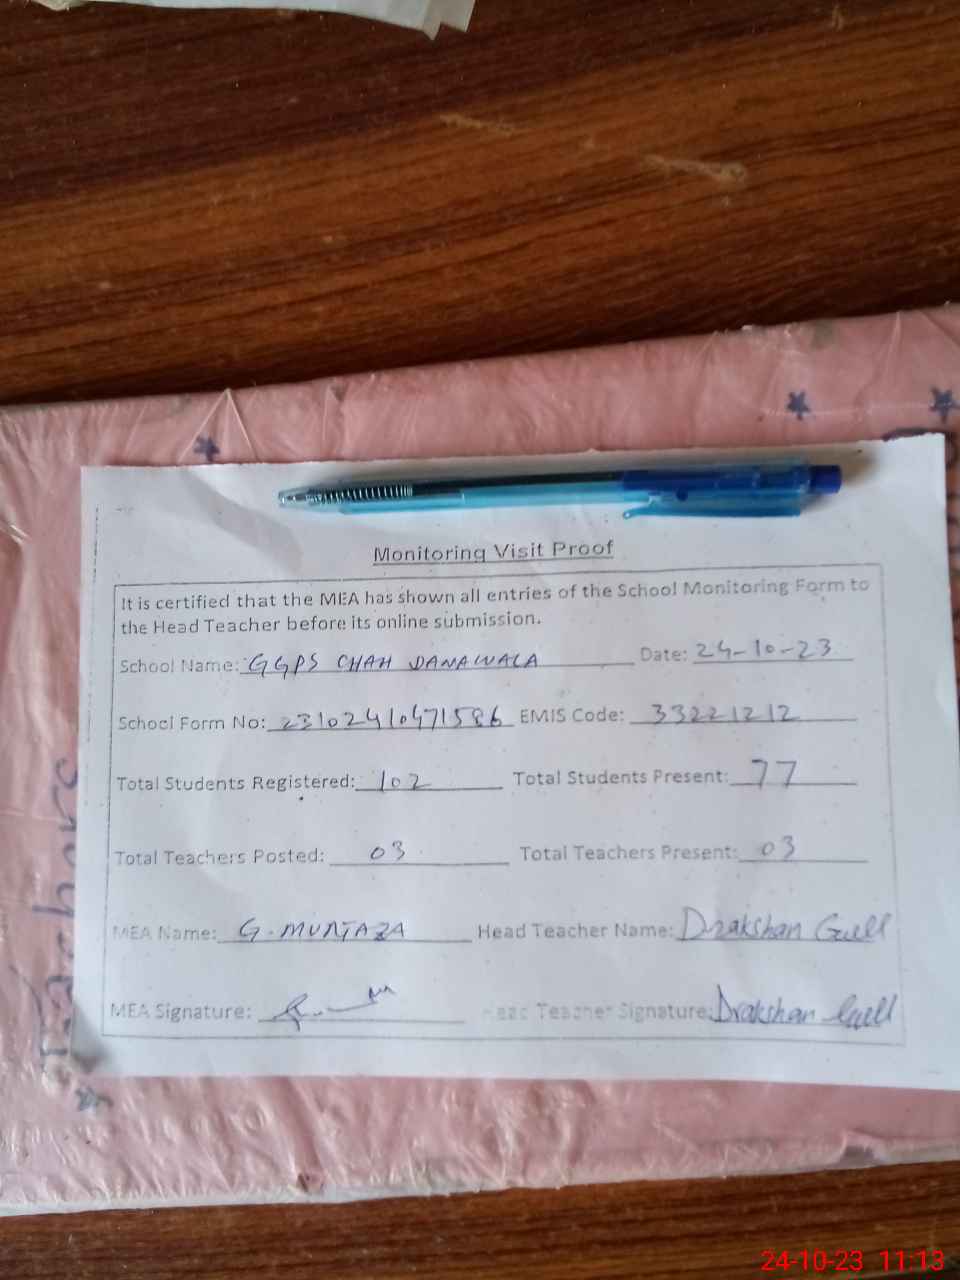 Monitoring Visit Proof
It is certified that the MEA has shown all entries of the School Monitoring Form to
the Head Teacher before its online submission.
School Name: GGPS CHAH DANAWALA Date: 24-10-23
School Form No: 23102410471586 EMIS Code: 33221212
Total Students Registered: 102 Total Students Present: 77
Total Teachers Posted: 03 Total Teachers Present: 03
MEA Name: G. MURTAZA Head Teacher Name: Drakshan Gull
MEA Signature: Head Teacher Signature: Drakshan Gull
24-10-23 11:13